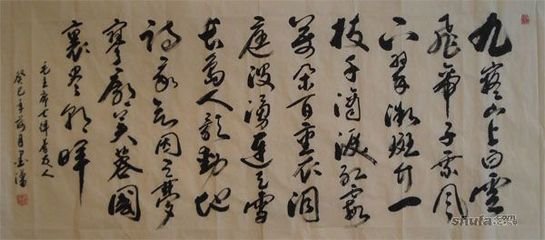 九嶷山上白雲
飛帝子乘風
下翠微斑竹一
枝千滴淚紅霞
萬朵百重衣洞
庭波湧連天雪
長島人歌動地
詩我欲因之夢
寥廓芙蓉國
裏盡朝暉
毛主席七律答友人
癸巳年
shufa.com